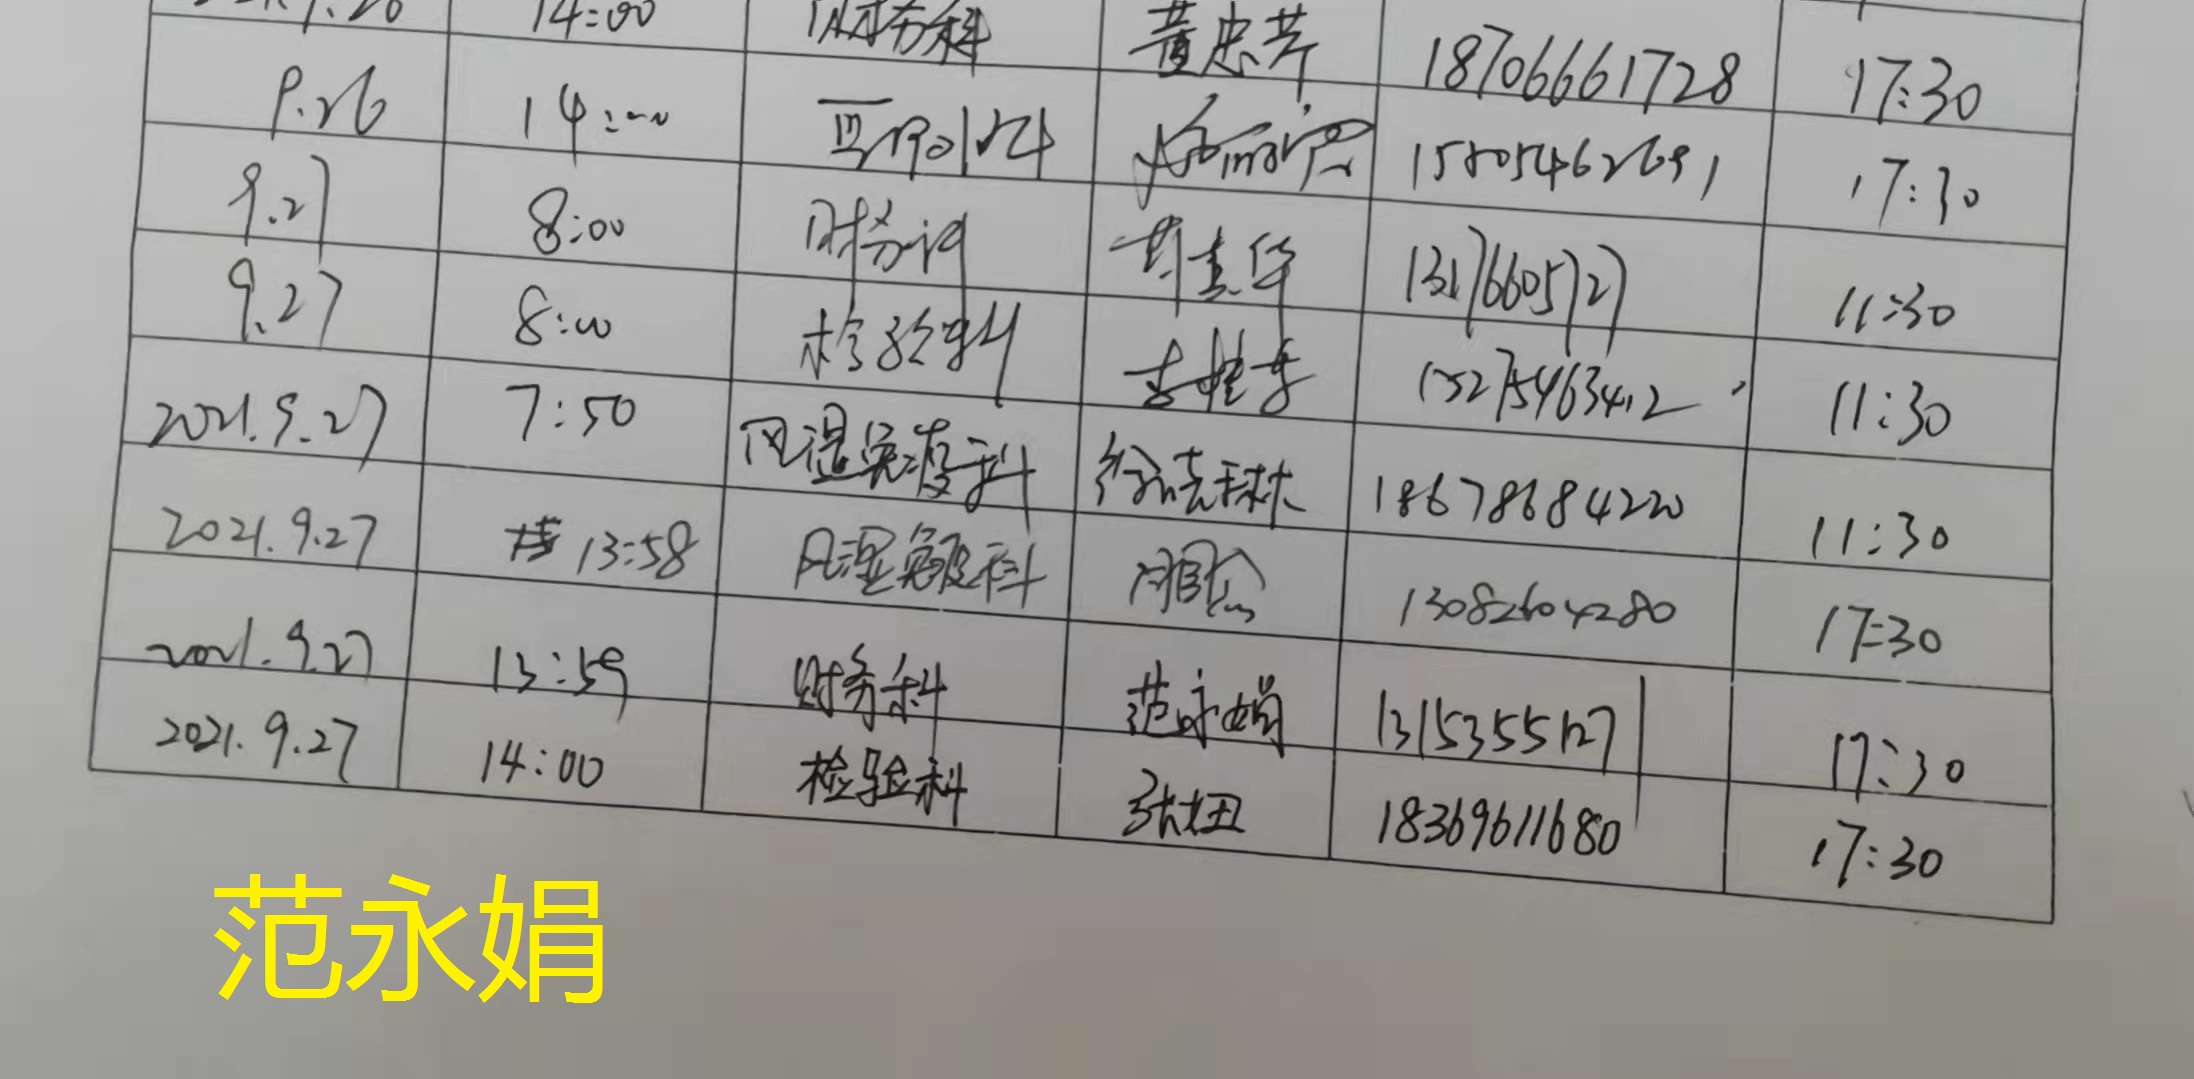 14:00 财务科 黄忠芹 18706661728 17:30
9.26 14:00 15805462691 17:30
9.27 8:00 财务科 13176605727 11:30
9.27 8:00 检验科 李桂芳 15275463412 11:30
2021.9.27 7:50 风湿免疫科 徐晓琳 18678684220 11:30
2021.9.27 13:58 风湿免疫科 13082604280 17:30
2021.9.27 13:59 财务科 范永娟 13153551271 17:30
2021.9.27 14:00 检验科 张妞 18369611680 17:30
范永娟